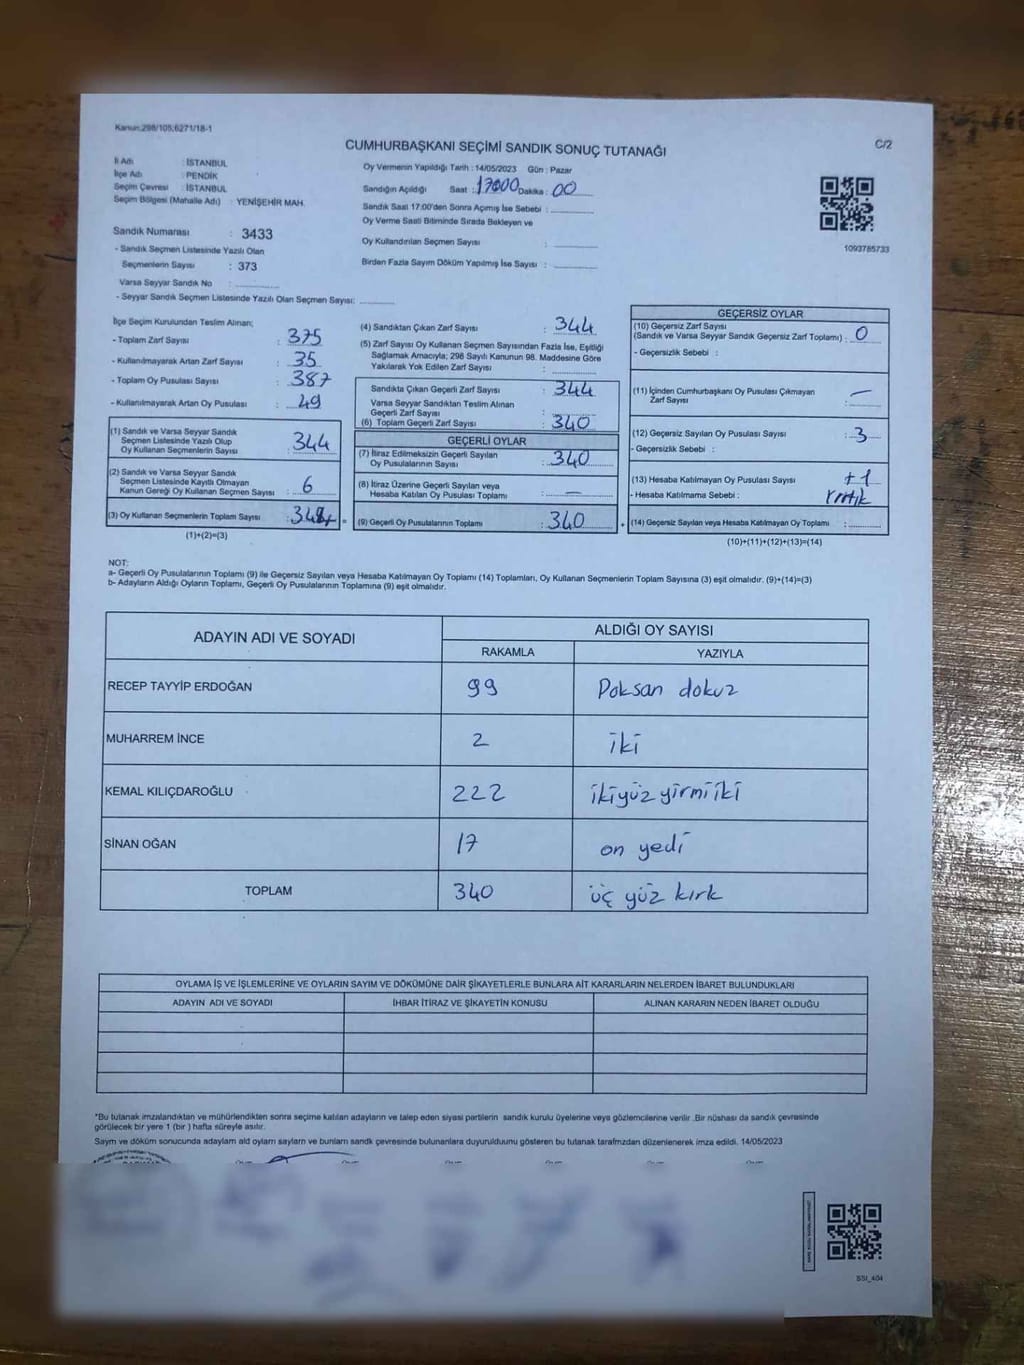 Kanun:298/105;6271/18-1
C/2
CUMHURBAŞKANI SEÇİMİ SANDIK SONUÇ TUTANAĞI
İl Adı : İSTANBUL
İlçe Adı : PENDİK
Seçim Çevresi : İSTANBUL
Seçim Bölgesi (Mahalle Adı) : YENİŞEHİR MAH.
Sandık Numarası : 3433
- Sandık Seçmen Listesinde Yazılı Olan
Seçmenlerin Sayısı : 373
Varsa Seyyar Sandık No :
- Seyyar Sandık Seçmen Listesinde Yazılı Olan Seçmen Sayısı:
Oy Vermenin Yapıldığı Tarih : 14/05/2023 Gün : Pazar
Sandığın Açıldığı Saat : 17:00 Dakika : 00
Sandık Saat 17:00'den Sonra Açmış İse Sebebi :
Oy Verme Saati Bitiminde Sırada Bekleyen ve
Oy Kullandırılan Seçmen Sayısı :
Birden Fazla Sayım Döküm Yapılmış İse Sayısı :
1093785733
İlçe Seçim Kurulundan Teslim Alınan;
- Toplam Zarf Sayısı : 375
- Kullanılmayarak Artan Zarf Sayısı : 35
- Toplam Oy Pusulası Sayısı : 387
- Kullanılmayarak Artan Oy Pusulası : 49
(1) Sandık ve Varsa Seyyar Sandık
Seçmen Listesinde Yazılı Olup
Oy Kullanan Seçmenlerin Sayısı : 344
(2) Sandık ve Varsa Seyyar Sandık
Seçmen Listesinde Kayıtlı Olmayan
Kanun Gereği Oy Kullanan Seçmen Sayısı : 6
(3) Oy Kullanan Seçmenlerin Toplam Sayısı :
(1)+(2)=(3)
(4) Sandıktan Çıkan Zarf Sayısı : 344
(5) Zarf Sayısı Oy Kullanan Seçmen Sayısından Fazla İse, Eşitliği
Sağlamak Amacıyla; 298 Sayılı Kanunun 98. Maddesine Göre
Yakılarak Yok Edilen Zarf Sayısı :
Sandıkta Çıkan Geçerli Zarf Sayısı : 344
Varsa Seyyar Sandıktan Teslim Alınan
Geçerli Zarf Sayısı :
(6) Toplam Geçerli Zarf Sayısı : 340
GEÇERLİ OYLAR
(7) İtiraz Edilmeksizin Geçerli Sayılan
Oy Pusulalarının Sayısı : 340
(8) İtiraz Üzerine Geçerli Sayılan veya
Hesaba Katılan Oy Pusulası Toplamı : —
(9) Geçerli Oy Pusulalarının Toplamı : 340
GEÇERSİZ OYLAR
(10) Geçersiz Zarf Sayısı
(Sandık ve Varsa Seyyar Sandık Geçersiz Zarf Toplamı) : 0
- Geçersizlik Sebebi :
(11) İçinden Cumhurbaşkanı Oy Pusulası Çıkmayan
Zarf Sayısı : —
(12) Geçersiz Sayılan Oy Pusulası Sayısı : 3
- Geçersizlik Sebebi :
(13) Hesaba Katılmayan Oy Pusulası Sayısı : +1
- Hesaba Katılmama Sebebi : Yırtık
(14) Geçersiz Sayılan veya Hesaba Katılmayan Oy Toplamı :
(10)+(11)+(12)+(13)=(14)
NOT:
a- Geçerli Oy Pusulalarının Toplamı (9) ile Geçersiz Sayılan veya Hesaba Katılmayan Oy Toplamı (14) Toplamları, Oy Kullanan Seçmenlerin Toplam Sayısına (3) eşit olmalıdır. (9)+(14)=(3)
b- Adayların Aldığı Oyların Toplamı, Geçerli Oy Pusulalarının Toplamına (9) eşit olmalıdır.
ADAYIN ADI VE SOYADI
ALDIĞI OY SAYISI
RAKAMLA YAZIYLA
RECEP TAYYİP ERDOĞAN 99 Doksan dokuz
MUHARREM İNCE 2 iki
KEMAL KILIÇDAROĞLU 222 ikiyüz yirmi iki
SİNAN OĞAN 17 on yedi
TOPLAM 340 üç yüz kırk
OYLAMA İŞ VE İŞLEMLERİNE VE OYLARIN SAYIM VE DÖKÜMÜNE DAİR ŞİKAYETLERLE BUNLARA AİT KARARLARIN NELERDEN İBARET BULUNDUKLARI
ADAYIN ADI VE SOYADI İHBAR İTİRAZ VE ŞİKAYETİN KONUSU ALINAN KARARIN NEDEN İBARET OLDUĞU
*Bu tutanak imzalandıktan ve mühürlendikten sonra seçime katılan adayların ve talep eden siyasi partilerin sandık kurulu üyelerine veya gözlemcilerine verilir .Bir nüshası da sandık çevresinde
görülecek bir yere 1 (bir ) hafta süreyle asılır.
Sayım ve döküm sonucunda adayların ald oyların sayların ve bunların sandk çevresinde bulunanlara duyurulduunu gösteren bu tutanak tarafmzdan düzenlenerek imza edildi. 14/05/2023
SSI_404